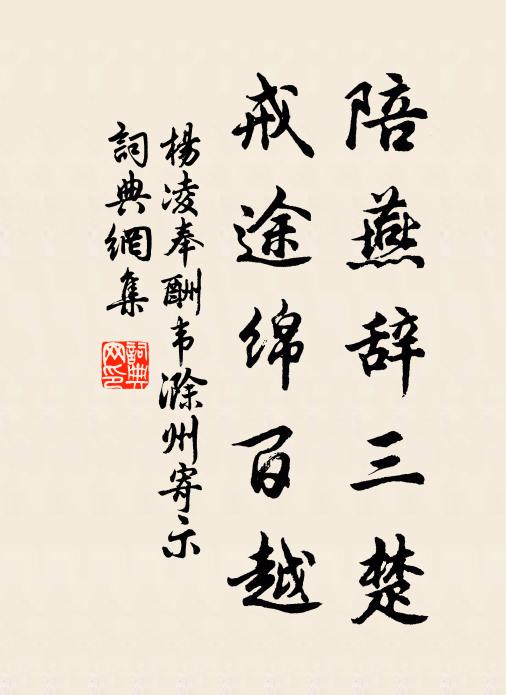 陪燕辞三楚
戒途绵百越
楊凌奉酬韦滁州寄示
詞典網集
詞典網印